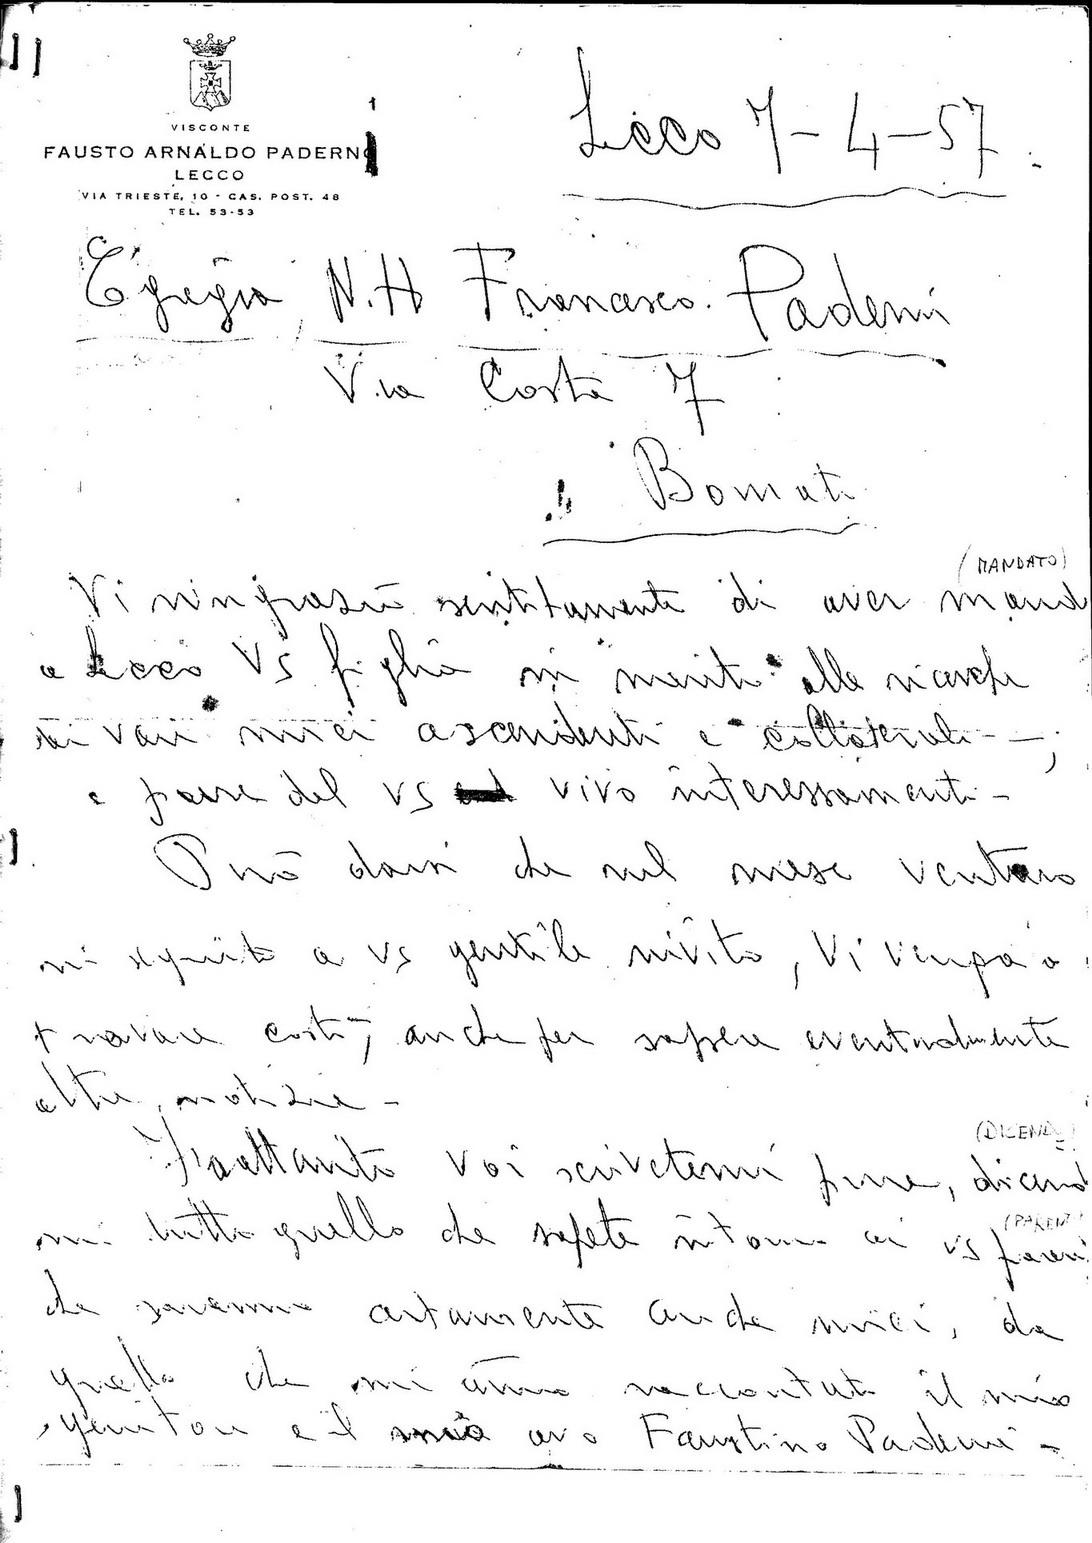 VISCONTE
FAUSTO ARNALDO PADERNO
LECCO
VIA TRIESTE, 10 - CAS. POST. 48
TEL. 53-53
1
Lecco 7-4-57
Egregio N.H Francesco Paderni
Via Costa 7
Bornato
(MANDATO)
Vi ringrazio sentitamente di aver mand
a Lecco Vs figlio in merito alle ricerche
dei vari miei ascendenti e collaterali -
e pure del vs vivo interessamento -
Può darsi che nel mese venturo
in seguito a vs gentile invito, Vi venga a
trovare costì, anche per sapere eventualmente
altre notizie -
(DICENDO)
Frattanto Voi scrivetemi pure, dicend
mi tutto quello che sapete intorno ai vs paren
(PARENTI)
che saranno certamente anche miei, da
quello che mi ànno raccontato il mio
genitore e il mio avo Faustino Paderni -